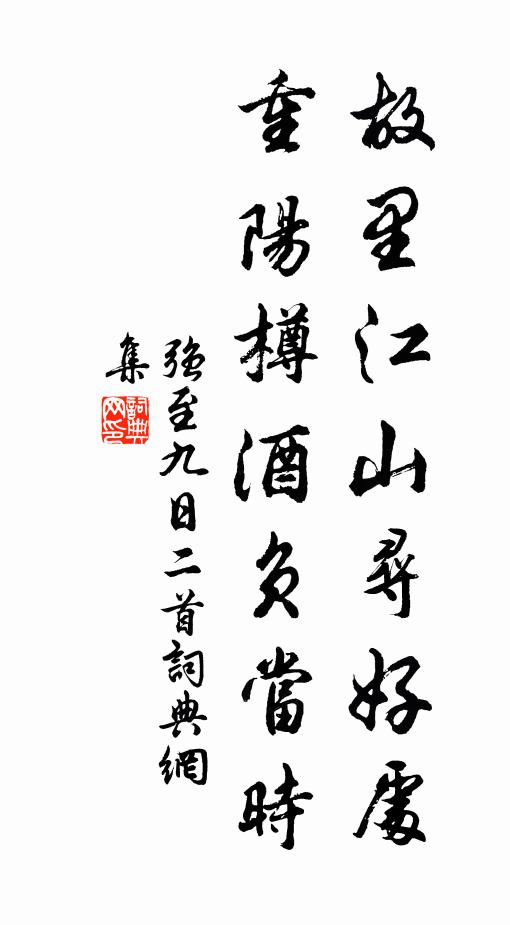 故里江山尋好處
重陽樽酒負當時
強至九日二首詞典網
集
詞典网印